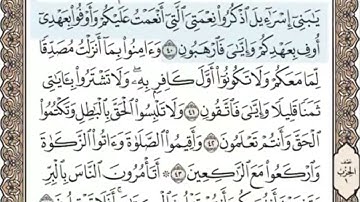 يَٰبَنِيٓ إِسۡرَٰٓءِيلَ ٱذۡكُرُواْ نِعۡمَتِيَ ٱلَّتِيٓ أَنۡعَمۡتُ عَلَيۡكُمۡ وَأَوۡفُواْ بِعَهۡدِيٓ
أُوفِ بِعَهۡدِكُمۡ وَإِيَّٰيَ فَٱرۡهَبُونِ ٤٠ وَءَامِنُواْ بِمَآ أَنزَلۡتُ مُصَدِّقٗا
لِّمَا مَعَكُمۡ وَلَا تَكُونُوٓاْ أَوَّلَ كَافِرِۭ بِهِۦۖ وَلَا تَشۡتَرُواْ بِـَٔايَٰتِي
ثَمَنٗا قَلِيلٗا وَإِيَّٰيَ فَٱتَّقُونِ ٤١ وَلَا تَلۡبِسُواْ ٱلۡحَقَّ بِٱلۡبَٰطِلِ وَتَكۡتُمُواْ
ٱلۡحَقَّ وَأَنتُمۡ تَعۡلَمُونَ ٤٢ وَأَقِيمُواْ ٱلصَّلَوٰةَ وَءَاتُواْ ٱلزَّكَوٰةَ
وَٱرۡكَعُواْ مَعَ ٱلرَّٰكِعِينَ ٤٣ أَتَأۡمُرُونَ ٱلنَّاسَ بِٱلۡبِرِّ
نصف
الحزب